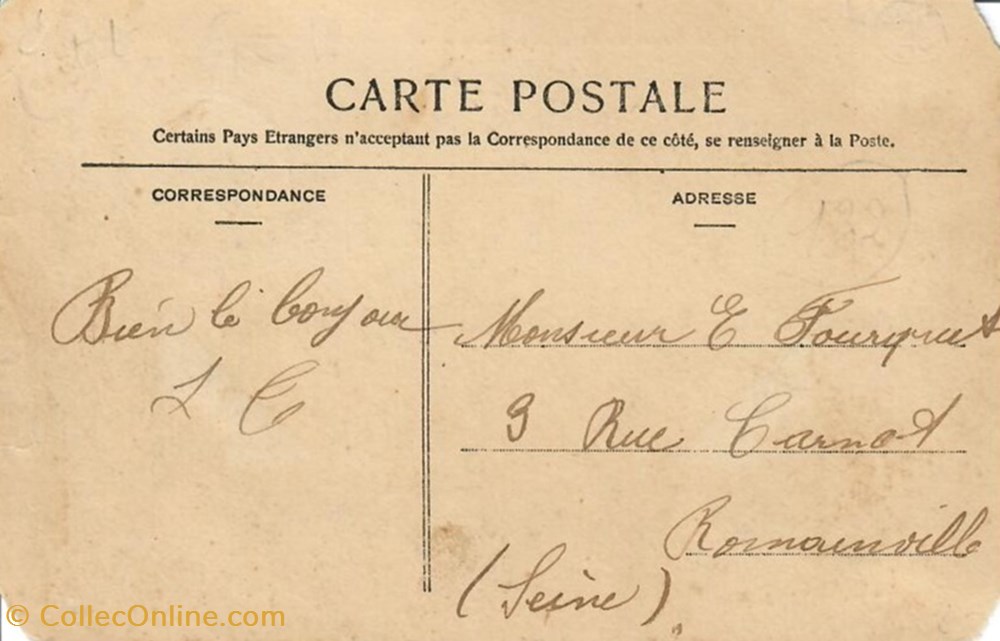 CARTE POSTALE
Certains Pays Etrangers n'acceptant pas la Correspondance de ce côté, se renseigner à la Poste.
CORRESPONDANCE
Bien le bonjour
L C
ADRESSE
Monsieur E Fourquet
9 Rue Carnot
Romainville
(Seine)
© CollecOnline.com